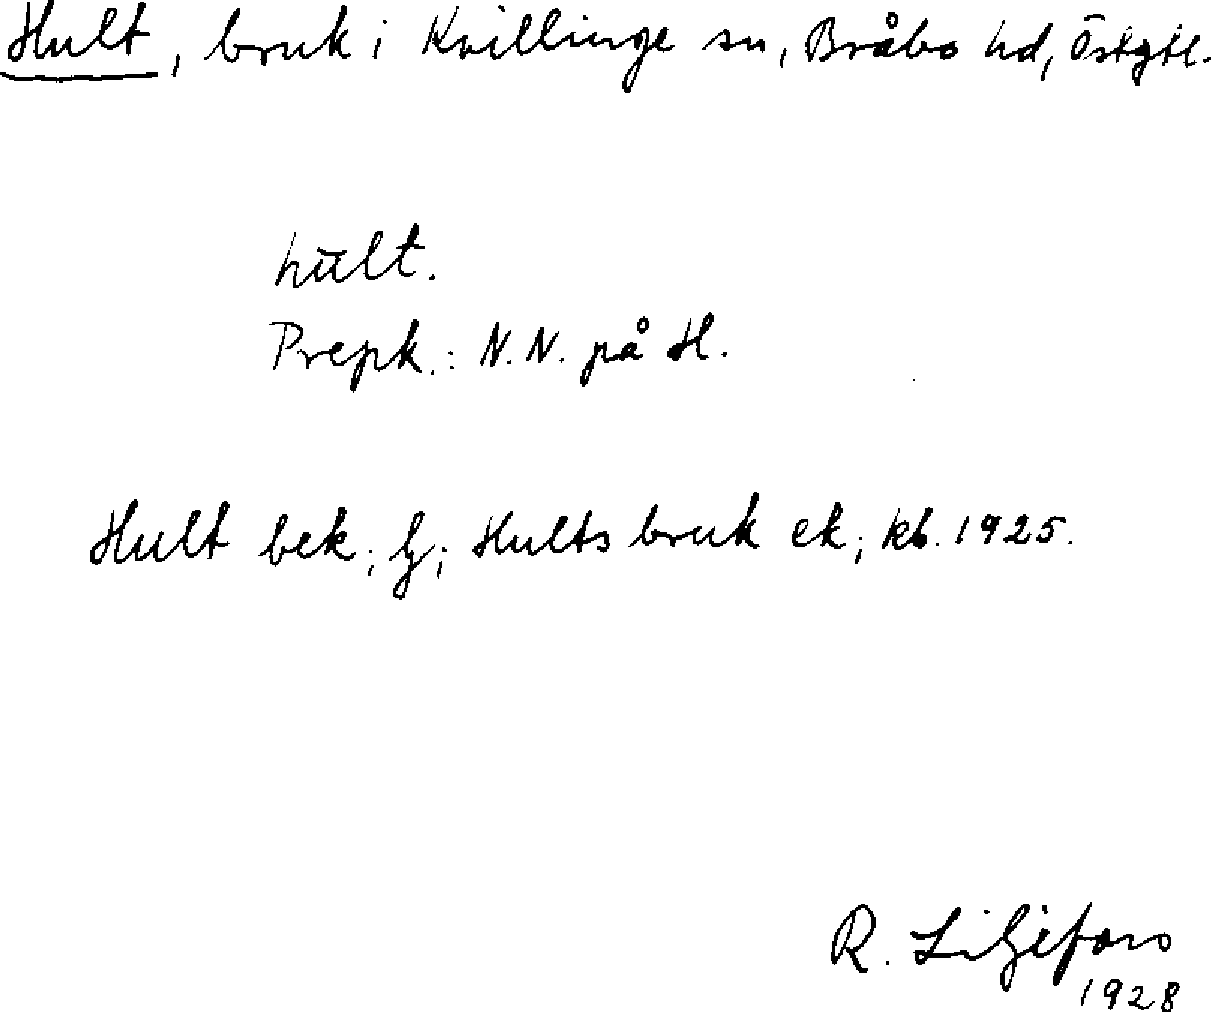 Hult, bruk i Kvillinge sn, Bråbo hd, Östgtl.
hult.
Prepk.: N.N. på H.
Hult bek; lj; Hults bruk ek; kb. 1925.
R. Liljefors
1928